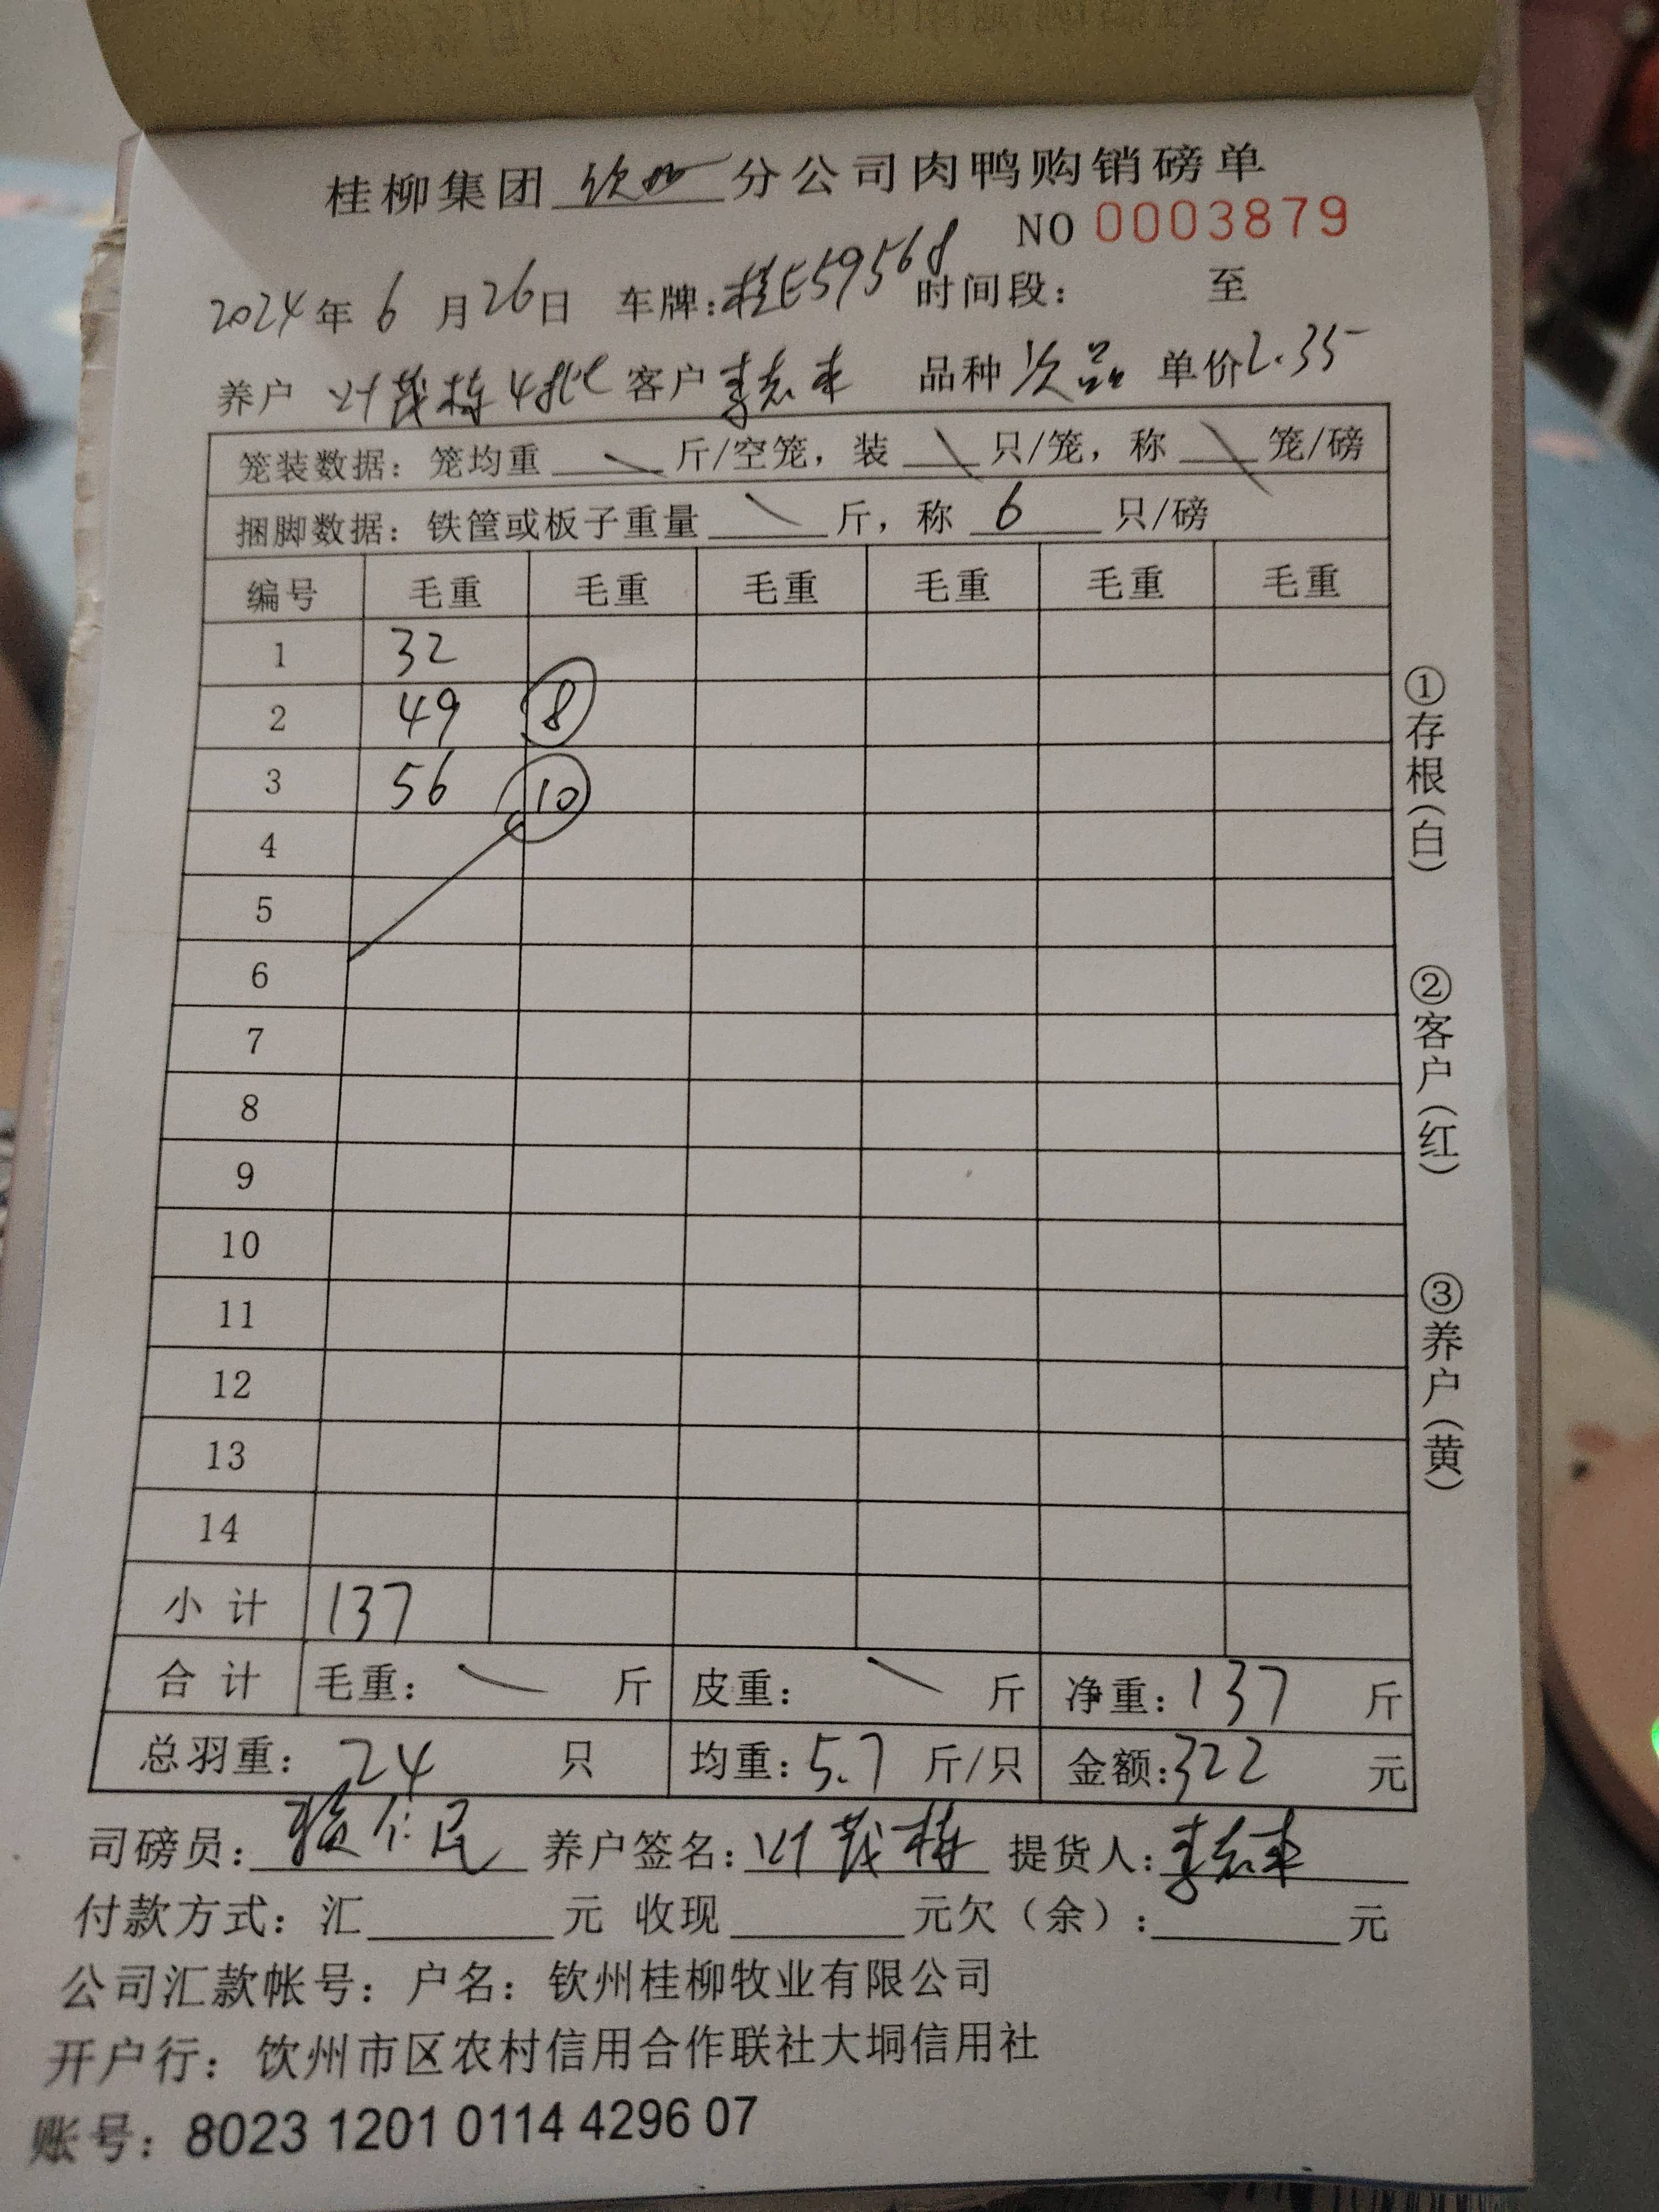 桂柳集团 钦州 分公司肉鸭购销磅单
NO 0003879
2024年 6 月 26日 车牌:桂E59568 时间段: 至
养户 叶茂栋 4批 客户 李志来 品种 次品 单价 2.35
笼装数据: 笼均重 斤/空笼, 装 只/笼, 称 笼/磅
捆脚数据: 铁筐或板子重量 斤, 称 6 只/磅
编号 毛重 毛重 毛重 毛重 毛重 毛重
1 32
2 49 8
3 56 10
4
5
6
7
8
9
10
11
12
13
14
小计 137
合计 毛重: 斤 皮重: 斤 净重: 137 斤
总羽重: 24 只 均重: 5.7 斤/只 金额:322 元
司磅员: 仁民 养户签名: 叶茂栋 提货人: 李志来
付款方式: 汇 元 收现 元欠(余): 元
公司汇款帐号: 户名: 钦州桂柳牧业有限公司
开户行: 钦州市区农村信用合作联社大垌信用社
账号: 8023 1201 0114 4296 07
①存根(白)
②客户(红)
③养户(黄)